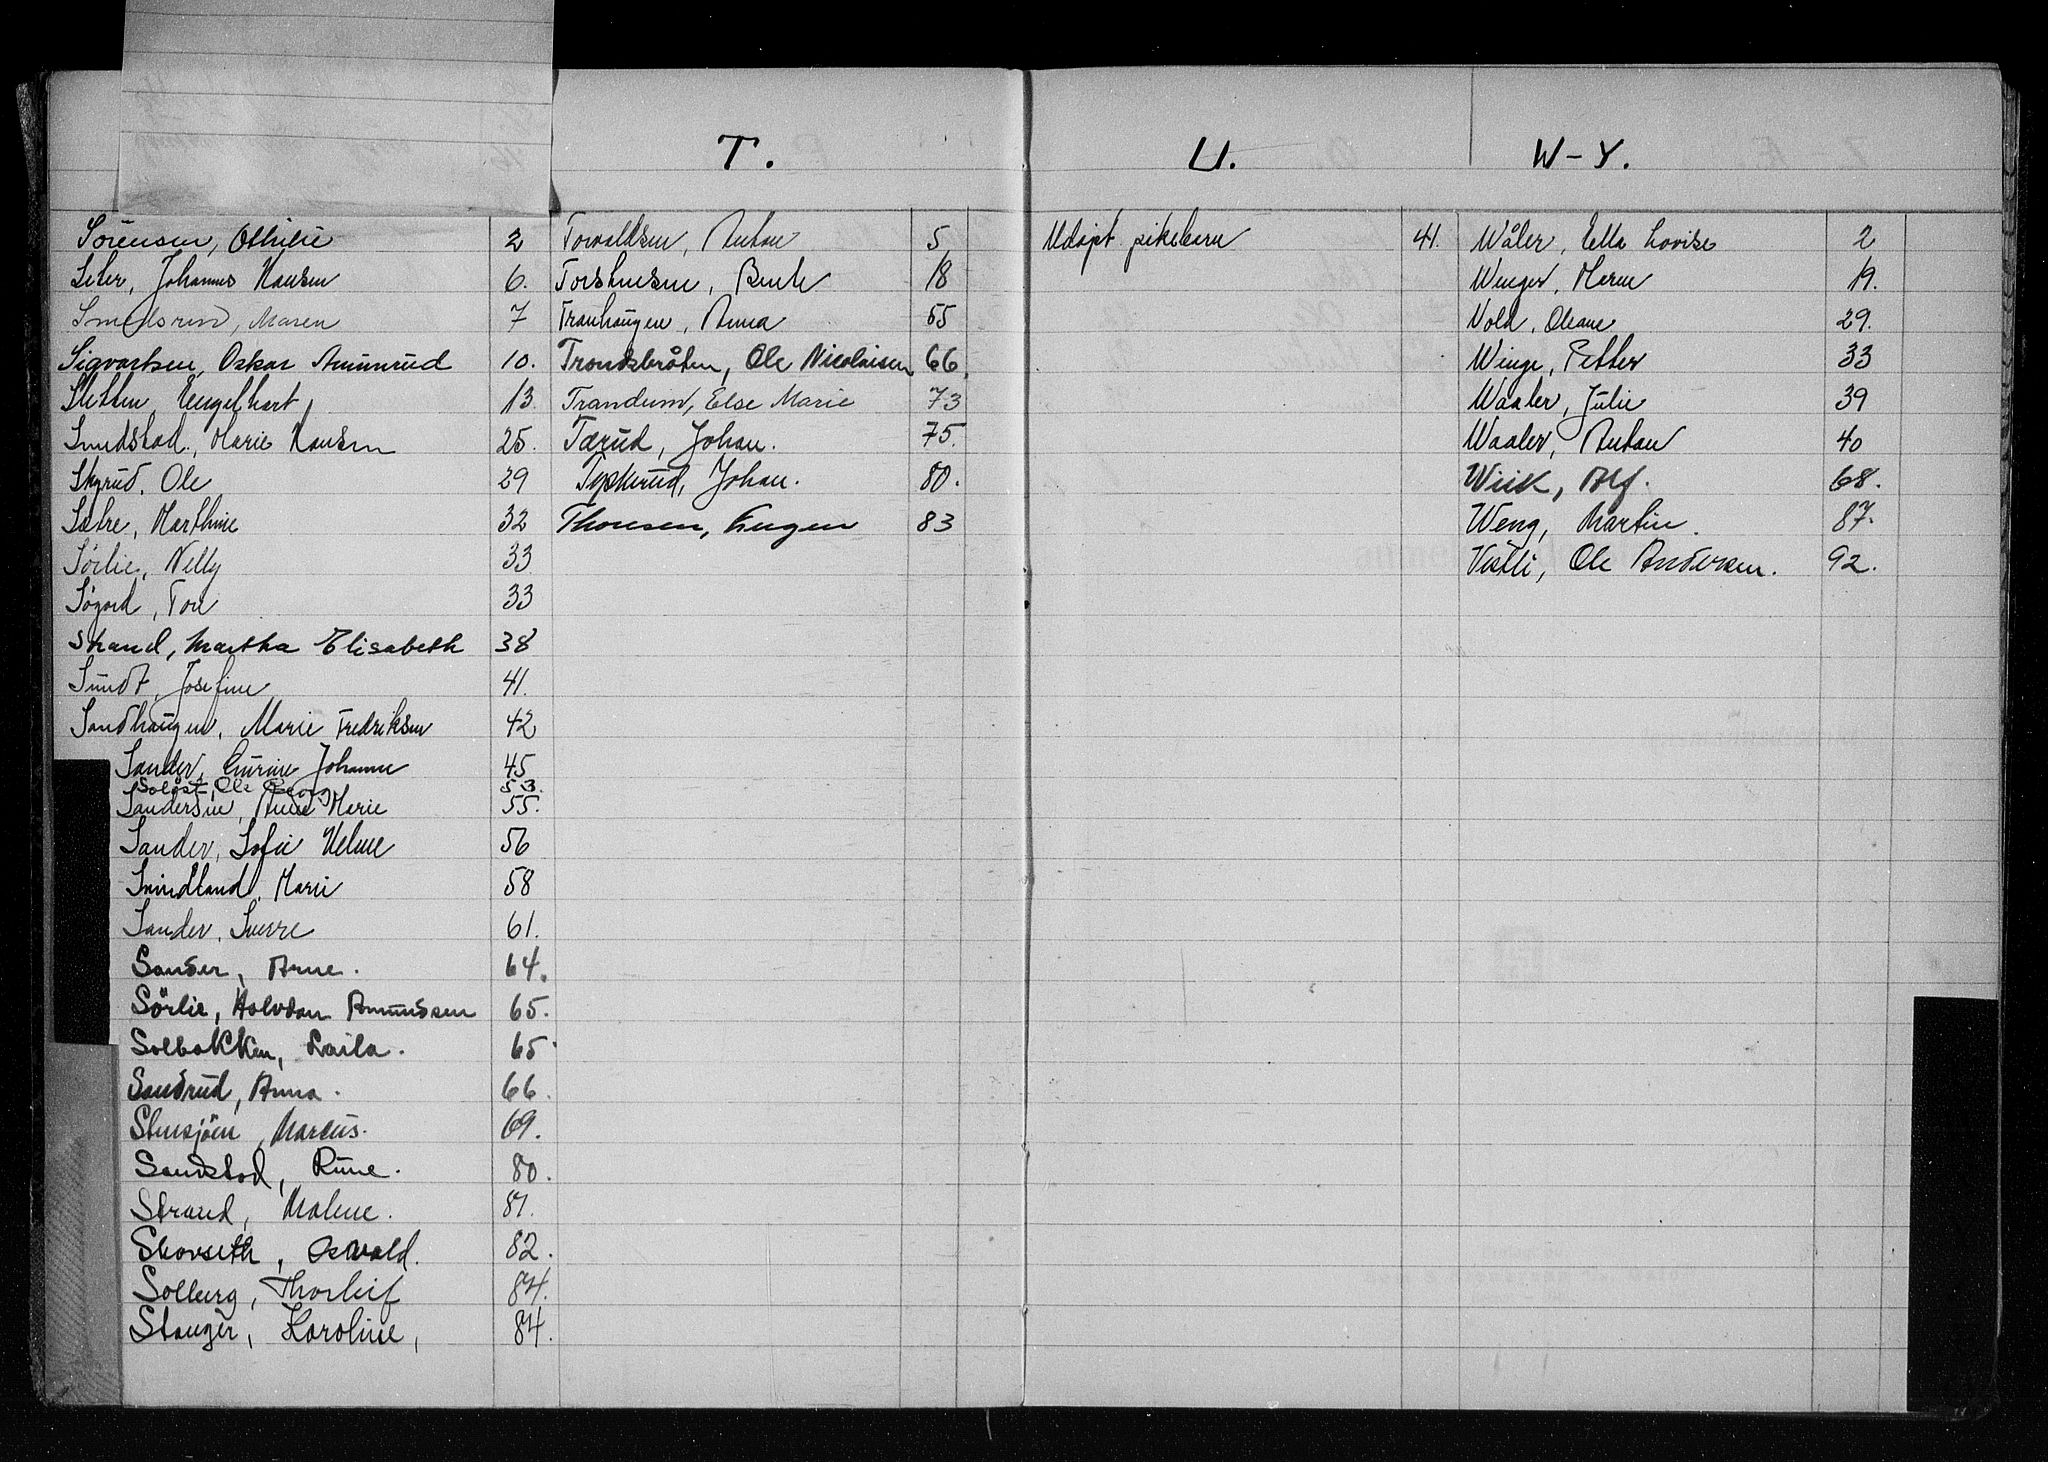 Sörensen, Othilie 2
Seter, Johannes Hansen 6.
Smedsrud, Maren 7
Sigvartsen, Oskar Amunrud 10.
Sletten, Engelhart 13
Sundstad, Marie Hansen 25.
Skyrud, Ole 29
Sætre, Marthine 32
Sörlie, Nelly 33
Søgord, Tore 33
Strand, Martha Elisabeth 38
Sundt, Josefine 41.
Sandhaugen, Marie Fredriksen 42
Sander, Gurine Johanne 45
Soløst, Ole 53.
Sandersen, Anne Marie 55.
Sander, Sofie Helene 56
Svindland, Marie 58
Sander, Sverre 61.
Sander, Arne. 64.
Sörlie, Halvdan Amundsen 65.
Solbakken, Laila. 65
Sandrud, Anna. 66.
Stensjöen, Marcus. 69.
Sandstad, Rune. 80.
Strand, Malene. 81.
Skovseth, Oswald. 82.
Solberg, Thorleif 84.
Stanger, Karoline, 84.
T.
Torvaldsen, Anton 5
Torstensen, Bente 18
Tranhaugen, Anna 55
Trondsbråten, Ole Nicolaisen 66.
Trandum, Else Marie 73
Tærud, Johan. 75.
Johan. 80.
Thonsen, Eugen 83
U.
Udøpt pikebarn 41.
W-Y.
Wåler, Ella Lovise 2
Wenger, Maren 19.
Vold, Oleane 29.
Winge, Petter 33
Waaler, Julie 39
Waaler, Anton 40
Wiik, Alf. 68.
Weng, Martin. 87.
Vestli, Ole Andersen. 92.